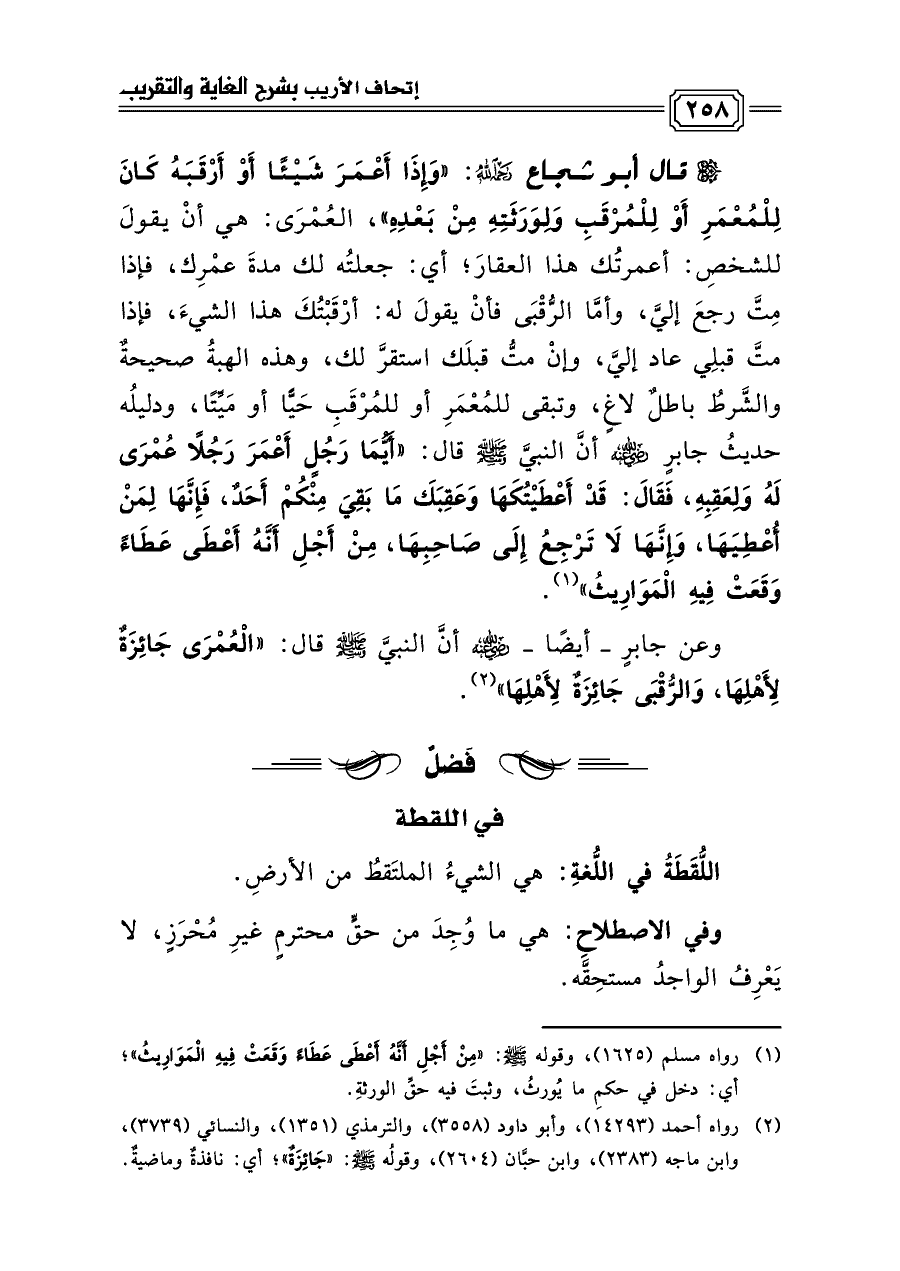 إتحاف الأريب بشرح الغاية والتقريب
٢٥٨
قال أبو شجاع رحمه الله: «وَإِذَا أَعْمَرَ شَيْئًا أَوْ أَرْقَبَهُ كَانَ
لِلْمُعْمَرِ أَوْ لِلْمُرْقَبِ وَلِوَرَثَتِهِ مِنْ بَعْدِهِ»، العُمْرَى: هي أنْ يقولَ
للشخصِ: أعمرتُك هذا العقارَ؛ أي: جعلتُه لك مدةَ عمْرِك، فإذا
مِتَّ رجعَ إليَّ، وأمَّا الرُّقْبَى فأنْ يقولَ له: أرْقَبْتُكَ هذا الشيءَ، فإذا
متَّ قبلِي عاد إليَّ، وإنْ متُّ قبلَك استقرَّ لك، وهذه الهبةُ صحيحةٌ
والشَّرطُ باطلٌ لاغٍ، وتبقى للمُعْمَرِ أو للمُرْقَبِ حَيًّا أو مَيِّتًا، ودليلُه
حديثُ جابرٍ رضي الله عنه أنَّ النبيَّ ﷺ قال: «أَيُّمَا رَجُلٍ أَعْمَرَ رَجُلًا عُمْرَى
لَهُ وَلِعَقِبِهِ، فَقَالَ: قَدْ أَعْطَيْتُكَهَا وَعَقِبَك مَا بَقِيَ مِنْكُمْ أَحَدٌ، فَإِنَّهَا لِمَنْ
أُعْطِيَهَا، وَإِنَّهَا لَا تَرْجِعُ إِلَى صَاحِبِهَا، مِنْ أَجْلِ أَنَّهُ أَعْطَى عَطَاءً
وَقَعَتْ فِيهِ الْمَوَارِيثُ»(١).
وعن جابرٍ ـ أيضًا ـ رضي الله عنه أنَّ النبيَّ ﷺ قال: «الْعُمْرَى جَائِزَةٌ
لِأَهْلِهَا، وَالرُّقْبَى جَائِزَةٌ لِأَهْلِهَا»(٢).
فَصْلٌ
في اللقطة
اللُّقَطَةُ في اللُّغةِ: هي الشيءُ الملتَقطُ من الأرضِ.
وفي الاصطلاحِ: هي ما وُجِدَ من حقٍّ محترمٍ غيرِ مُحْرَزٍ، لا
يَعْرِفُ الواجدُ مستحِقَّه.
(١) رواه مسلم (١٦٢٥)، وقوله ﷺ: «مِنْ أَجْلِ أَنَّهُ أَعْطَى عَطَاءً وَقَعَتْ فِيهِ الْمَوَارِيثُ»؛
أي: دخل في حكمِ ما يُورثُ، وثبتَ فيه حقِّ الورثةِ.
(٢) رواه أحمد (١٤٢٩٣)، وأبو داود (٣٥٥٨)، والترمذي (١٣٥١)، والنسائي (٣٧٣٩)،
وابن ماجه (٢٣٨٣)، وابن حبَّان (٢٦٠٤)، وقولُه ﷺ: «جَائِزَةٌ»؛ أي: نافذةٌ وماضيةٌ.